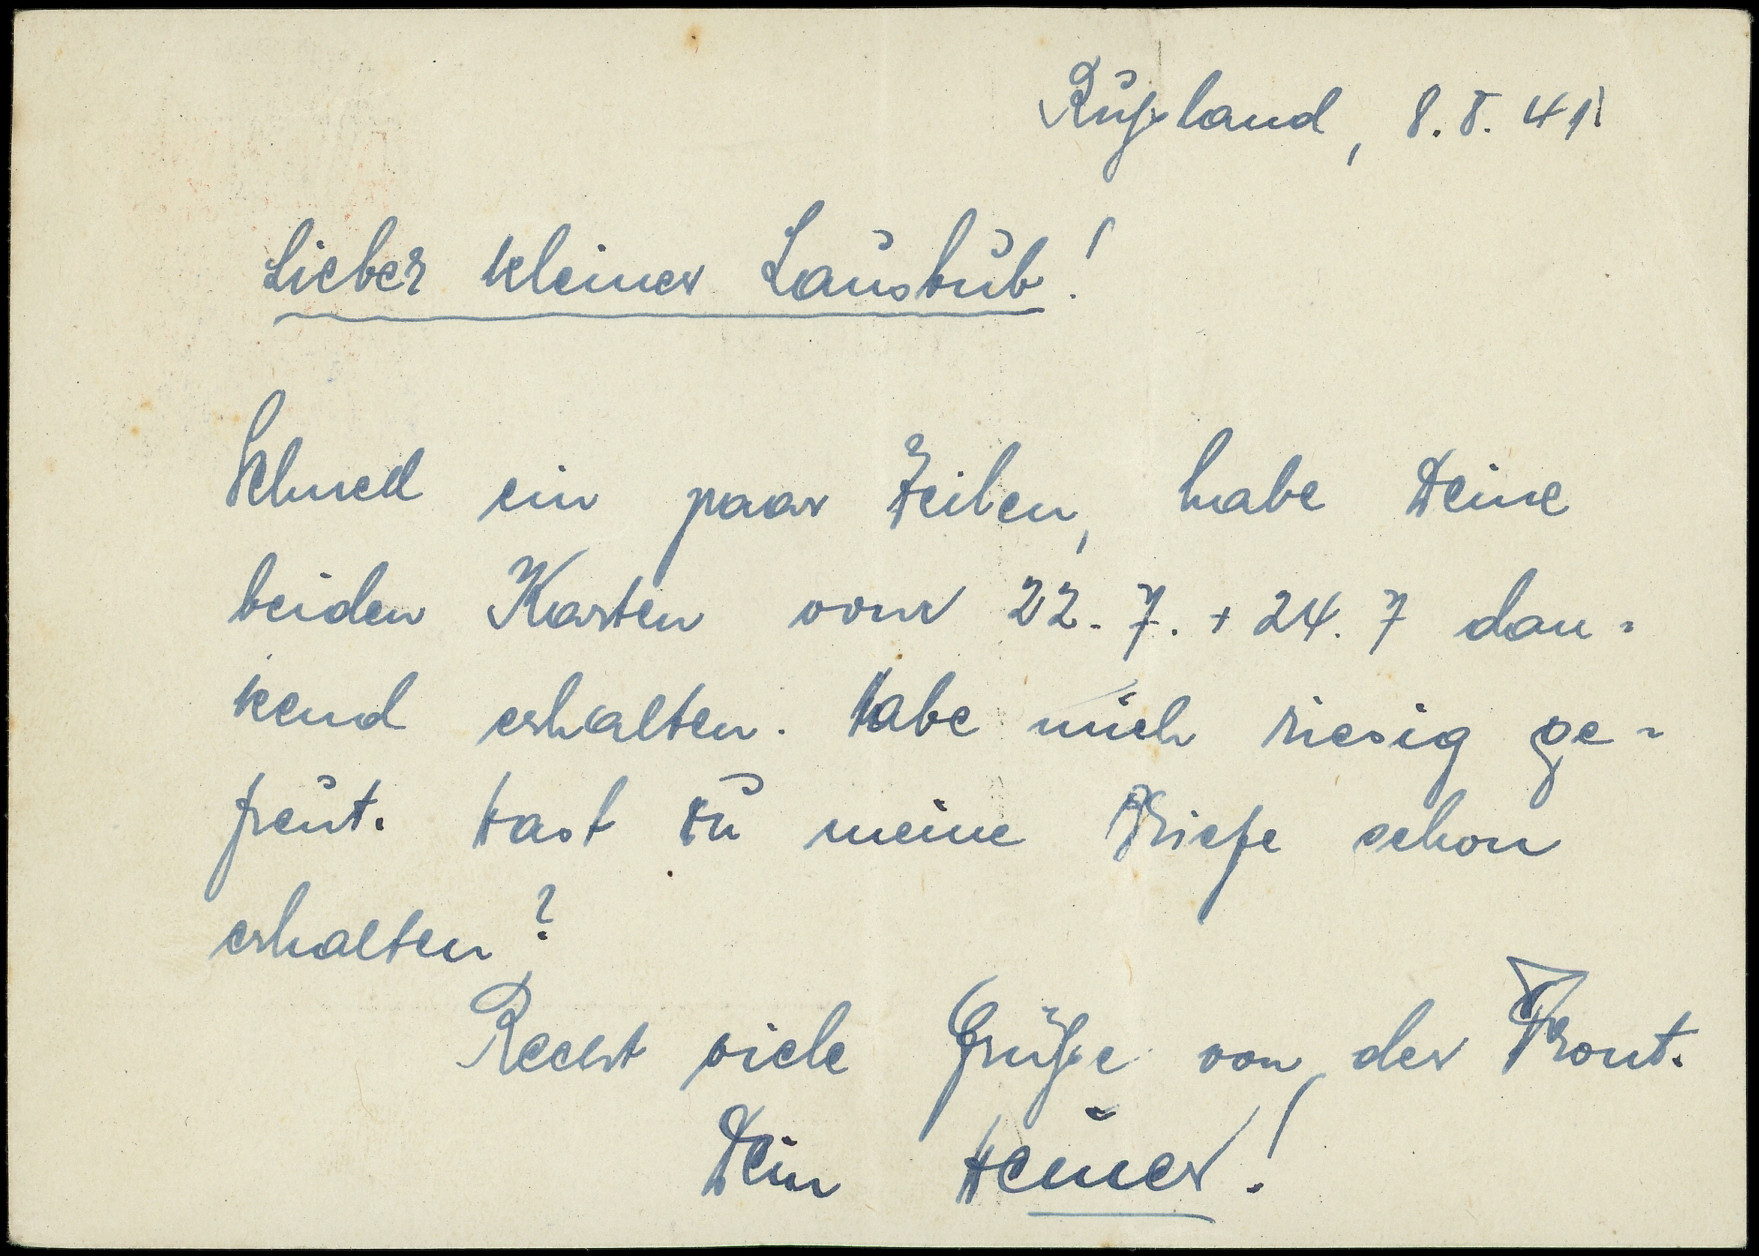 Rußland, 8.8.41
Lieber kleiner Lausbub!
Schnell ein paar Zeilen, habe Deine
beiden Karten vom 22.7. + 24.7 dan-
kend erhalten. Habe mich riesig ge-
freut. Hast Du meine Briefe schon
erhalten?
Recht viele Grüße von der Front.
Dein Heiner!